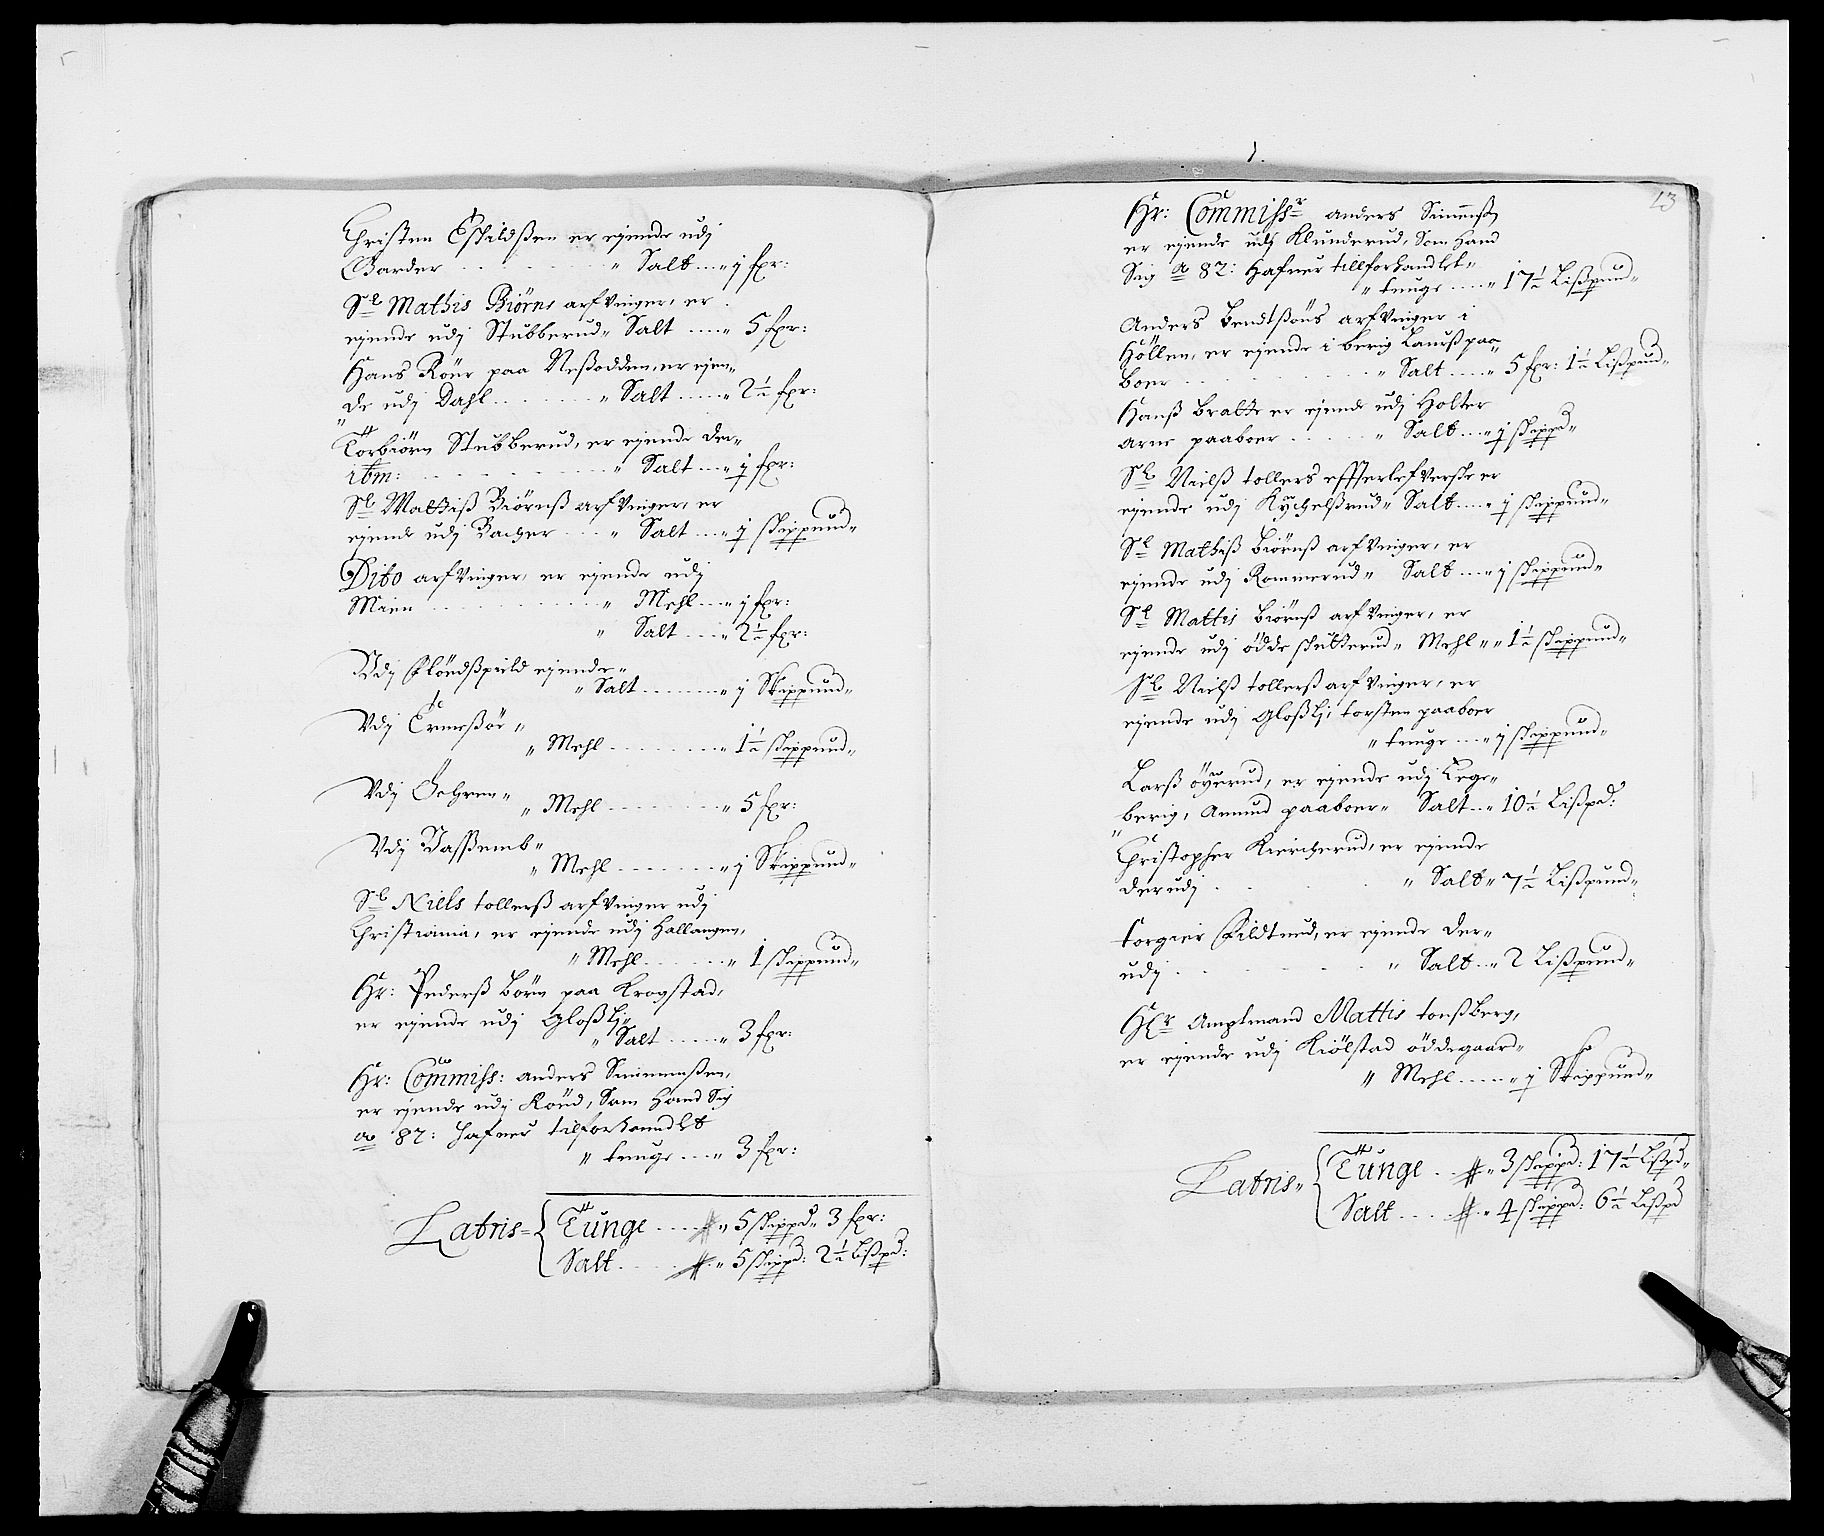 Christen Eskildßen er ejende udj
Garder . . . . . . " Salt ... " j fgr:
Sl Mathis Biörns arfvinger, er
ejende udj Stubberud " Salt .... " 5 fgr:
Hans Röer paa Neßodden, er ejen-
de udj Dahl . . . . " Salt ..... " 2½ fgr:
Torbiörn Stubberud, er ejende der-
ibm: . . . . . . " Salt ... " j fgr:
Sl Mattiß Biörnß arfvinger, er
ejende udj Bacher . . . " Salt ... " j skippund "
Dito arfvinger, er ejende udj
Mien . . . . . . " Mehl ... " j fgr:
" Salt .... " 2½ fgr:
Udj ejende "
" Salt ........ " j Skippund "
Vdj
" Mehl ........ " 1½ skippund "
Vdj
" Mehl ........ " 5 fgr:
Vdj
" Mehl ....... " j Skippund "
Sl Niels tollerß arfvinger udj
Christiania, er ejende udj Hallangen,
" Mehl ...... " 1 skippund "
Hr: Pederß börn paa Krogstad,
er ejende udj Gloßlj "
" Salt ..... " 3 fgr:
Hr: Commiss: anders Simmenßen,
er ejende udj Röud, Som Hand Sig
ao 87: Hafuer tilforhandlet
" tunge ... " 3 fgr:
Latris = Tunge .... " 5 skippd " 3 fgr:
Salt . . . . " 5 skippd: 2½ Lißpd:
13
Hr: Commissr anders Simenß
er ejende udj Klunderud, Som Hand
Sig ao 87: Hafuer tillforhandlet "
" tunge .... " 17½ Lißpund "
Anders Bendtßöns arfvinger i
Höllen, er ejende i berig Laurß paa-
boer . . . . . . " Salt .... " 5 fgr: 1½ Lißpund "
Hanß bratte er ejende udj Holter
Arne paaboer . . . . " Salt ... " j skippd "
Sl Nielß tollers effterlefverske er
ejende udj " Salt .... " j skippund "
Sl Mathiß Biörnß arfvinger, er
ejende udj Rommerud " Salt .... " j skippund "
Sl Mattis Biörnß arfvinger, er
ejende udj ödde " Mehl " " 1½ skippund "
Sl Nielß tollerß arfvinger, er
ejende udj Gloßlj, torsten paaboer
" tunge .... " j skippund "
Larß öyerud, er ejende udj Tege-
berig, Amund paaboer " Salt .. " 10½ Lißpd:
Christopher Kiercherud, er ejende
derudj . . . . . " Salt " 7½ Lißpund "
torgier er ejende der-
udj . . . . . . " Salt .. " 2 Lißpund "
Hr Amptmand Mattis tonßberg,
er ejende udj Kiölstad öddegaar-
" Mehl ..... " j Skippund "
Latris = Tunge . . " 3 skippd: 17½ Lißpd "
Salt .... " 4 skippd: 6½ Lißpd